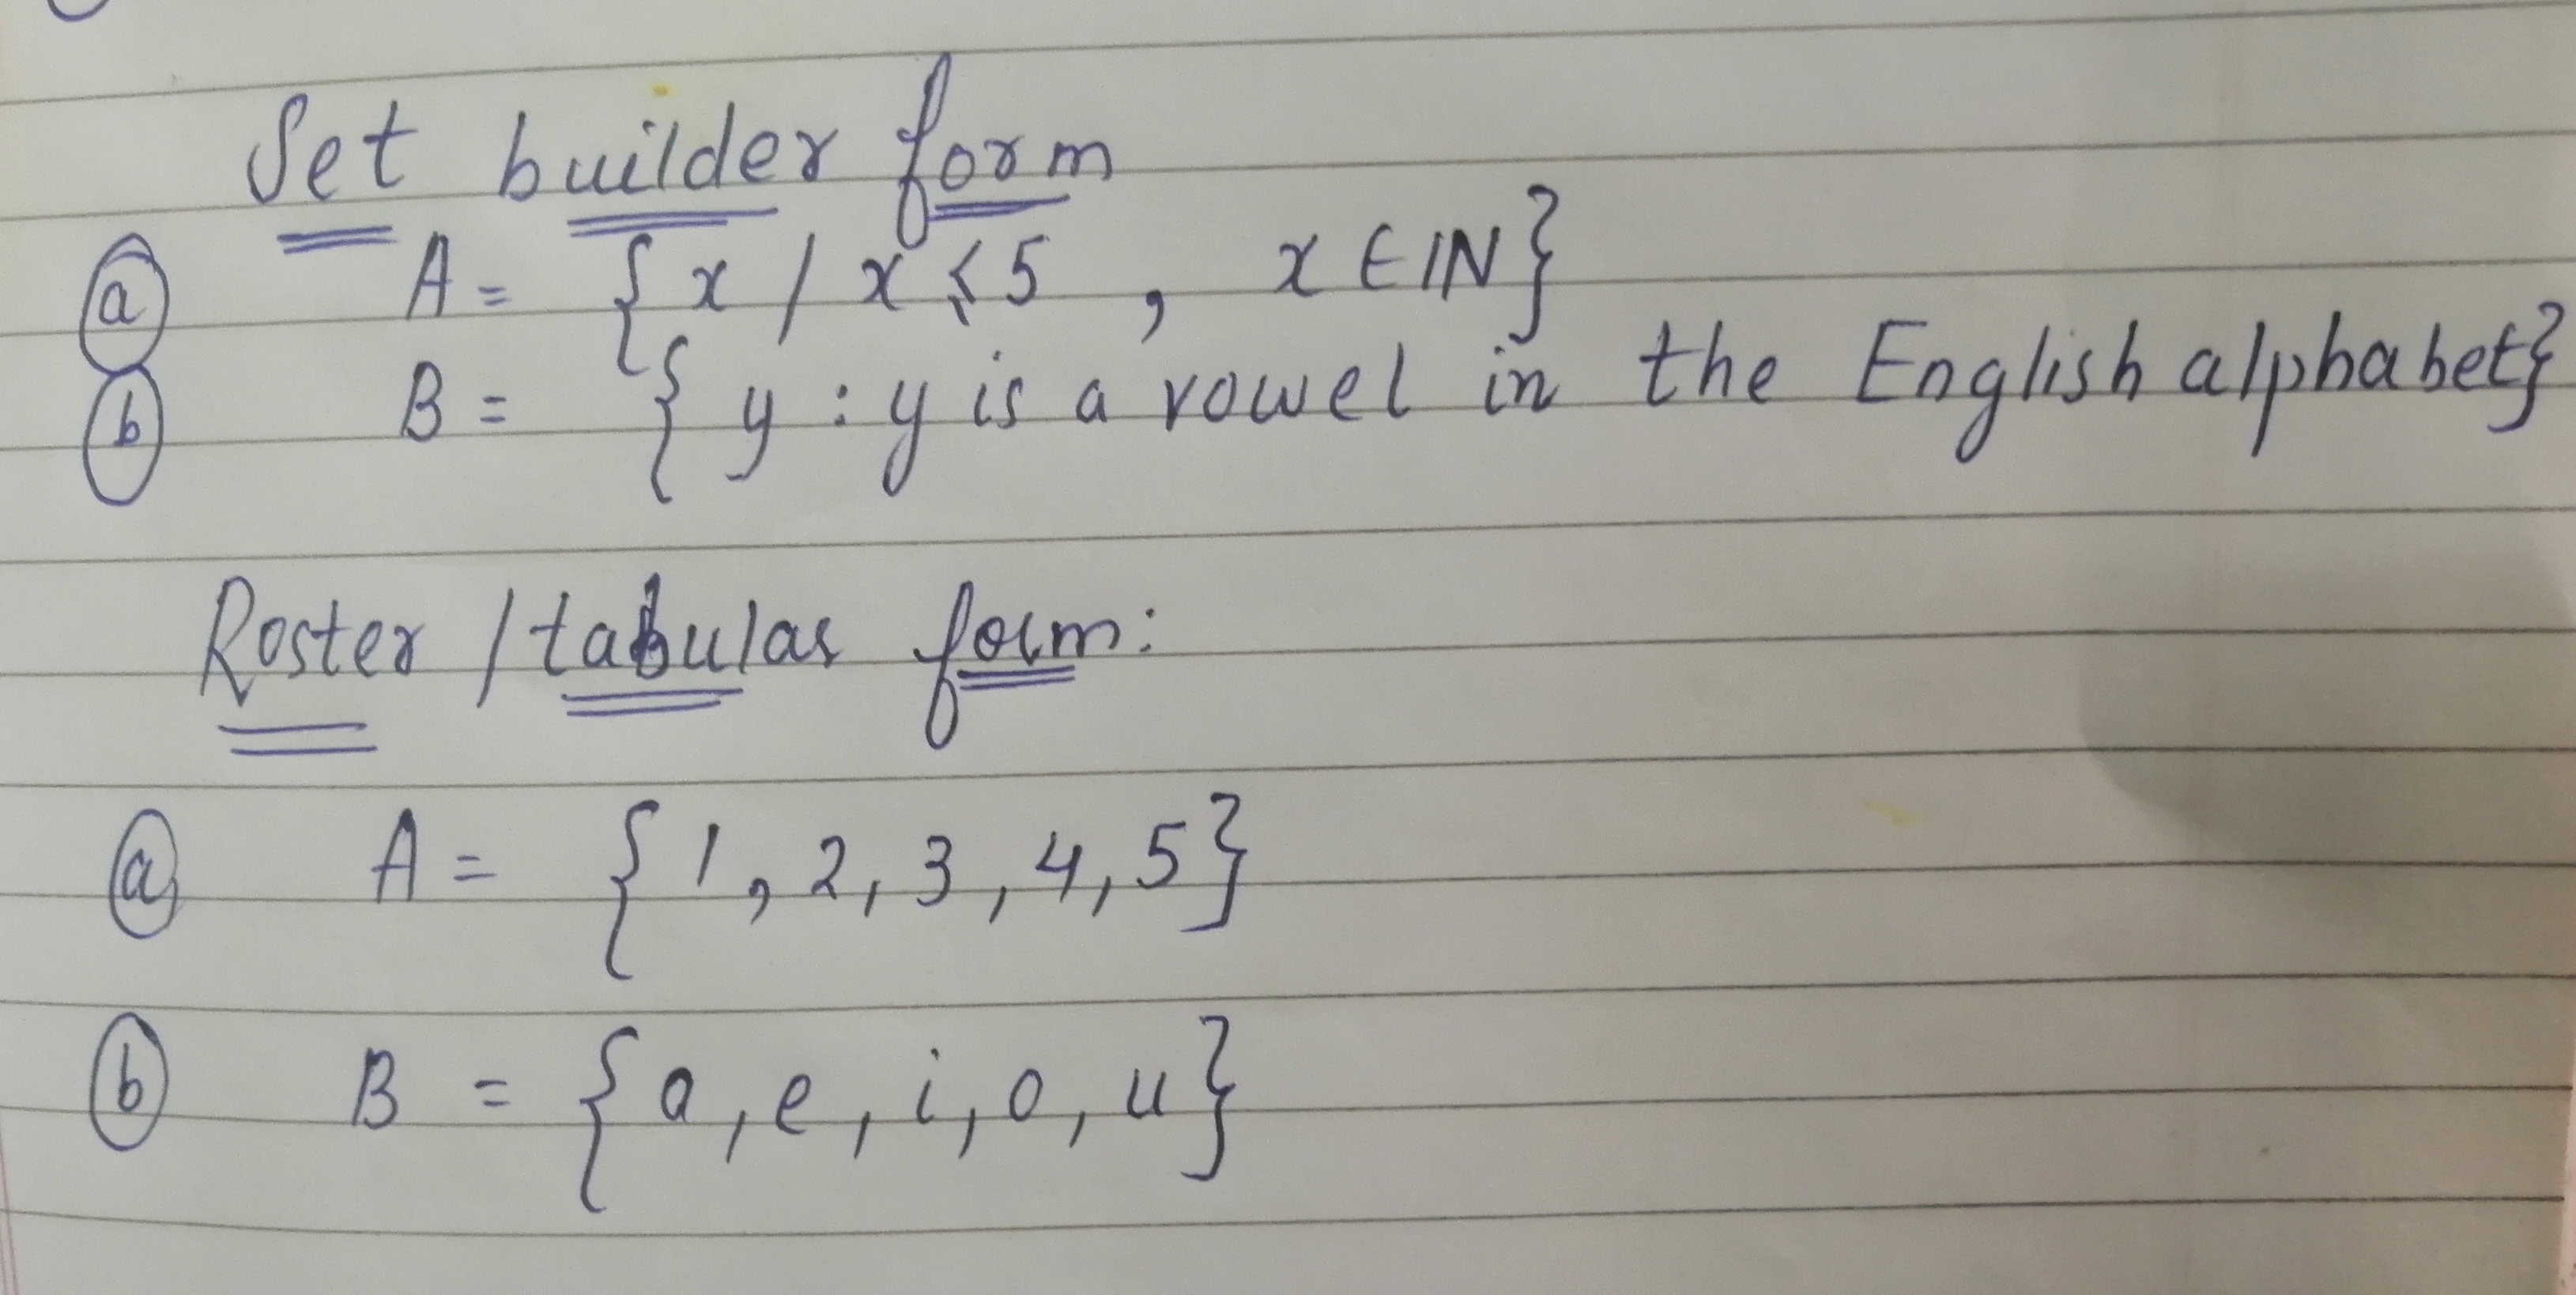 Set builder form
(a) A = { x / x ≤ 5 , x ∈ ℕ}
(b) B = { y : y is a vowel in the English alphabet}
Roster / tabular form:
(a) A = { 1, 2, 3, 4, 5}
(b) B = { a, e, i, o, u}